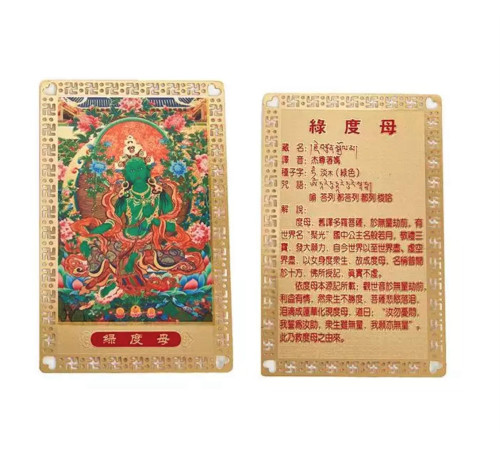 綠度母
綠度母
藏名：
譯音：杰尊卓瑪
種子字： 淡木（綠色）
咒語：
嗡 答列 都答列 都列 梭哈
解說：
度母，舊譯多羅菩薩，於無量劫前，有
世界名“聚光”國中公主名般若月，敬禮三
寶，發大願力，自今世界以至世界盡、虛空
界盡，以女身度衆生，故成度母，名稱普聞
於十方，佛所授記，真實不虛。
依度母本源記所載：觀世音於無量劫前，
利益有情，然衆生不勝度，菩薩悲愍落淚，
淚滴成蓮華化現度母，道曰：“汝勿憂悶，
我誓為汝助，衆生雖無量，我願亦無量”。
此乃救度母之由來。